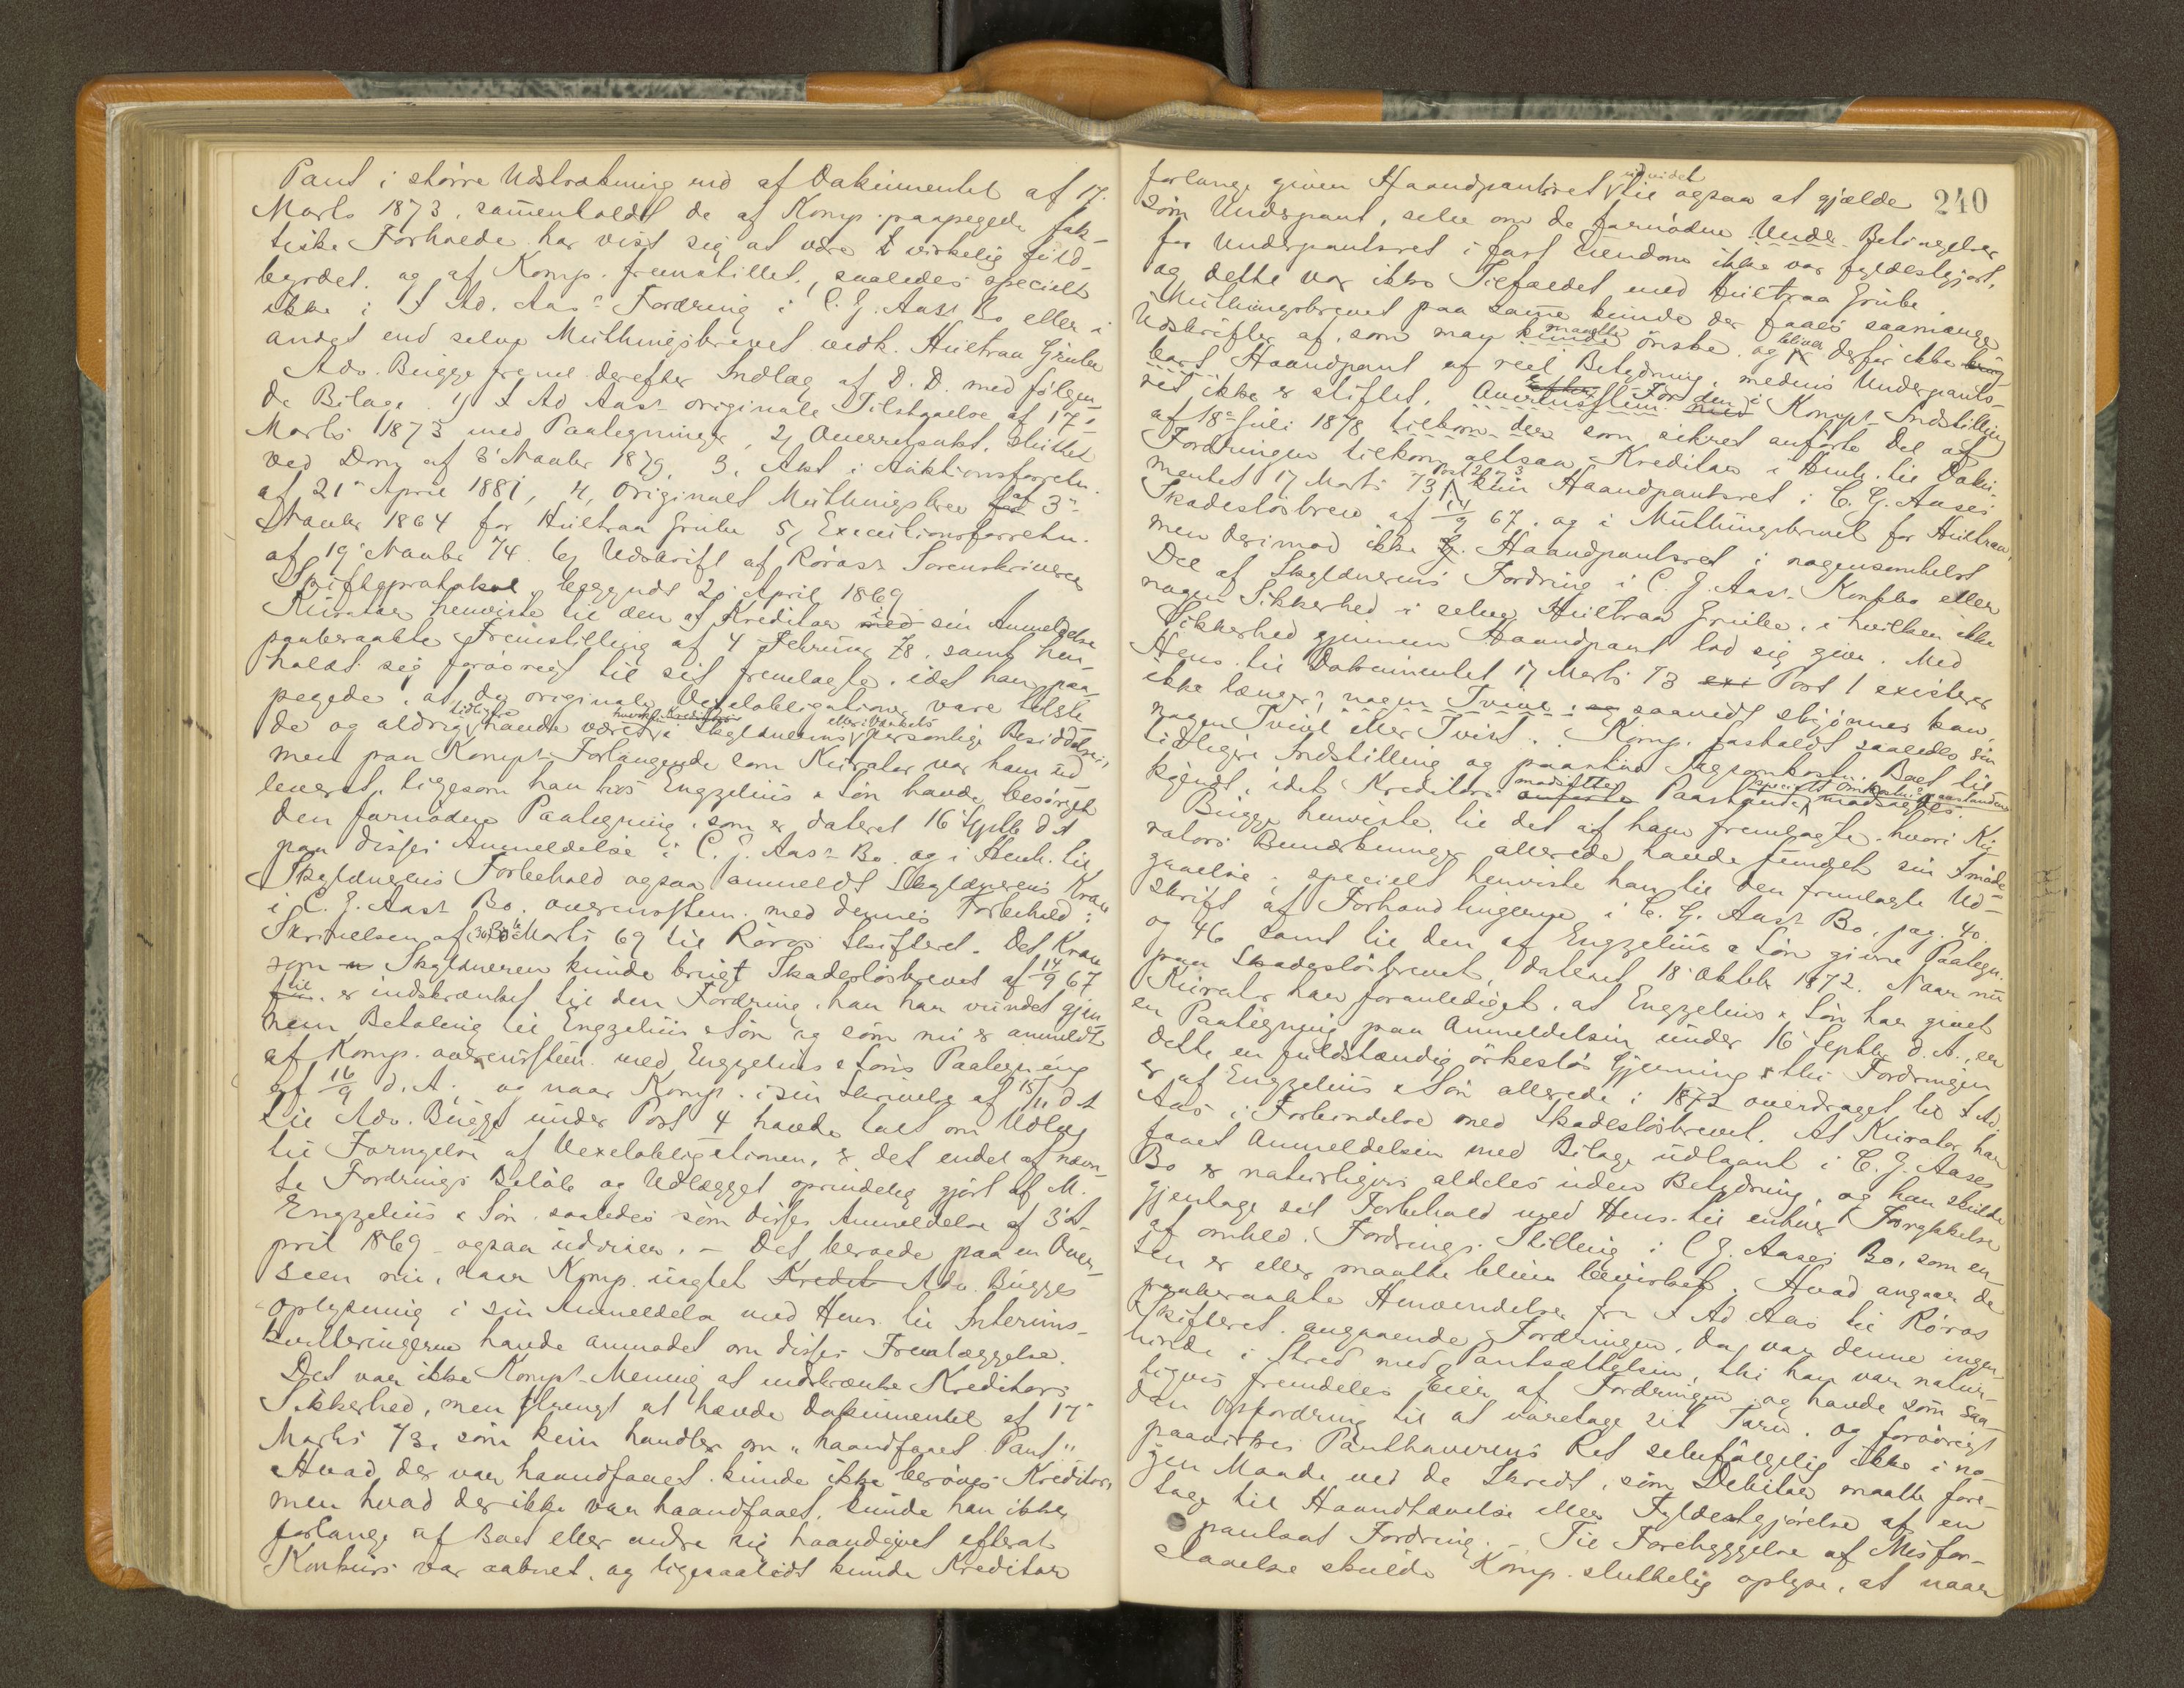 Pant i større Udstrækning end af Dokumentet af 17.
Marts 1873, sam̄enholdt de af Komp. paapegede fak-
tiske Forholde har vist sig at være virkelig fuld-
byrdet og af Komp. fremstillet, saaledes specielt
ikke i J. Ad. Aas's Fordring i C. J. Aas's Bo eller i
andet end selve Muthingsbrevet vedk. Hultraa Grube
Adv. Bugge freml. derefter Indlæg af D. D. med følgen-
de Bilage. 1) J Ad Aas's originale Tilstaaelse af 17.
Marts 1873 med Paategninger, 2, Overretsakt, sluttet
ved Dom af 3. Novbr 1879, 3, Akt i Auktionsforretn.
af 21. April 1881, 4, Originalt Muthingsbrev af 3.
Novbr 1864 for Hultraa Grube 5, Executionsforretn.
af 19. Novbr 74. 6, Udskrift af Røros's Sorenskriveres
Skifteprotokol, begyndt 2. April 1869
Kurator henviste til den af Kreditor i sin Anmeldelse
paaberaabte Fremstilling af 4 Februar 78, samt hen-
holdt sig forøvrigt til sit fremlagte, idet han paa-
pegede, at de originale Vexelobligationer vare tilste-
de og aldrig tidligere havde været i Skyldnerens eller Værkets personlige Besiddelse,
men paa Komp's Forlangende som Kurator var ham ud
leveret, ligesom han hos Engzelius & Søn havde besørget
den fornødne Paategning, som er dateret 16 Septb. d A
paa disses Anmeldelse i C. J. Aas's Bo og i Henh. til
Skyldnerens Forbehold ogsaa anmeldt Skyldnerens Krav
i C. J. Aas's Bo, overensstem. med dennes Forbehold i
Skrivelsen af Marts 69 til Røros Skifteret. Det Krav
som Skyldneren kunde brugt Skadesløsbrevet af 14/9 67
til, er indskrænket til den Fordring, han har vundet gjen
nem Betaling til Engzelius & Søn og som nu er anmeldt
af Komp. overensstem. med Engzelius & Søns Paategning
af 16/9 d. A. og naar Komp. i sin Skrivelse af 15/11 d A
til Adv. Bugge under Post 4 havde talt om Udlæg
til Fornyelse af Vexelobligationen, er det endel af nævn-
te Fordrings Beløb og Udlægget oprindelig gjort af M.
Engzelius & Søn, saaledes som disses Anmeldelse af 3 A-
pril 1869 ogsaa udviser. – Det beroede paa en Over-
seen nu, naar Komp. uagtet Adv. Bugges
Oplysning i sin Anmeldelse med Hens. til Interims-
kvitteringerne havde anmodet om disses Fremlæggelse.
Det var ikke Komp's Mening at indskrænke Kreditors
Sikkerhed, men strengt at hævde Dokumentet af 17
Marts 73, som kun handler om „haandfaaet Pant"
Hvad der var haandfaaet kunde ikke berøves Kreditor,
men hvad der ikke var haandfaaet, kunde han ikke
forlange af Boet eller andre sig haandgivet efterat
Konkurs var aabnet, og ligesaalidt kunde Kreditor
240
forlange given Haandpantsret udvidet til ogsaa at gjælde
som Underpant, selv om de fornødne Betingelser
for Underpantsret i fast Eiendom ikke var fyldestgjort,
og dette var ikke Tilfældet med Hultraa Grube
Muthingsbrevet paa sam̄e kunde der faaes saamange
Udskrifter af, som man maatte ønske, og bliver derfor ikke
Haandpant af reel Betydning, medens Underpants-
ret ikke er stiftet. For den i Komp's Indstilling
af 18. Juli 1878 som sikret anførte Del af
Fordringen tilkom altsaa Kreditor i Henh. til Doku-
mentet 17 Marts 73 Post 2 og 3 kun Haandpantsret i C. J. Aases
Skadesløsbrev af 14/9 67, og i Muthingsbrevet for Hultraa,
men derimod ikke Haandpantsret i nogensomhelst
Del af Skyldnerens Fordring i C. J. Aas's Konkbo eller
nogen Sikkerhed i selve Hultraa Grube, i hvilken ikke
Sikkerhed gjennem Haandpant lod sig give. Med
Hens. til Dokumentet 17 Marts 73 Post 1 existerer
ikke længer, saavidt skjønnes kan,
nogen Tvivl eller Tvist. Komp. fastholdt saaledes sin
tidligere Indstilling og paastod Sagsomkostn. Boet til-
kjendt, idet Kreditors modsatte Paastand specielt Omkostningspaastanden modsagdes.
Bugge henviste til det af ham fremlagte, hvori Ku-
rators Bemærkninger allerede havde fundet sin Imøde-
gaaelse, specielt henviste han til den fremlagte Ud-
skrift af Forhandlingerne i C. J. Aas's Bo, pag. 40
og 46 samt til den af Engzelius & Søn givne Paategn.
paa Skadesløsbrevet, dateret 18 Oktbr 1872. Naar nu
Kurator har foranlediget, at Engzelius & Søn har givet
en Paategning paa Anmeldelsen under 16 Septbr d. A., er
dette en fuldstændig ørkesløs Gjerning, thi Fordringen
er af Engzelius & Søn allerede i 1872 overdraget til J Ad.
Aas i Forbindelse med Skadesløsbrevet. At Kurator har
faaet Anmeldelsen med Bilage udlaant i C. J. Aases
Bo er naturligvis aldeles uden Betydning, og han skulde
gjentage sit Forbehold med Hens. til enhver Forrykkelse
af omhed. Fordrings Stilling i C J. Aases Bo, som en-
ten er eller maatte blive bevirket. Hvad angaar de
paaberaabte Henvendelse fra J Ad Aas til Røros
Skifteret angaaende Fordringen, da var denne ingen-
lunde i Strid med Pantsættelsen, thi han var natur-
ligvis fremdeles Eier af Fordringen og havde som saa-
dan Opfordring til at varetage sit Tarv, og forøvrigt
paavirkes Panthaverens Ret selvfølgelig ikke i no-
gen Maade ved de Skridt, som Debitor maatte fore-
tage til Haandhævelse eller Fyldestgjørelse af en
pantsat Fordring. – Til Forebyggelse af Misfor-
staaelse skulde Komp. sluttelig oplyse, at naar